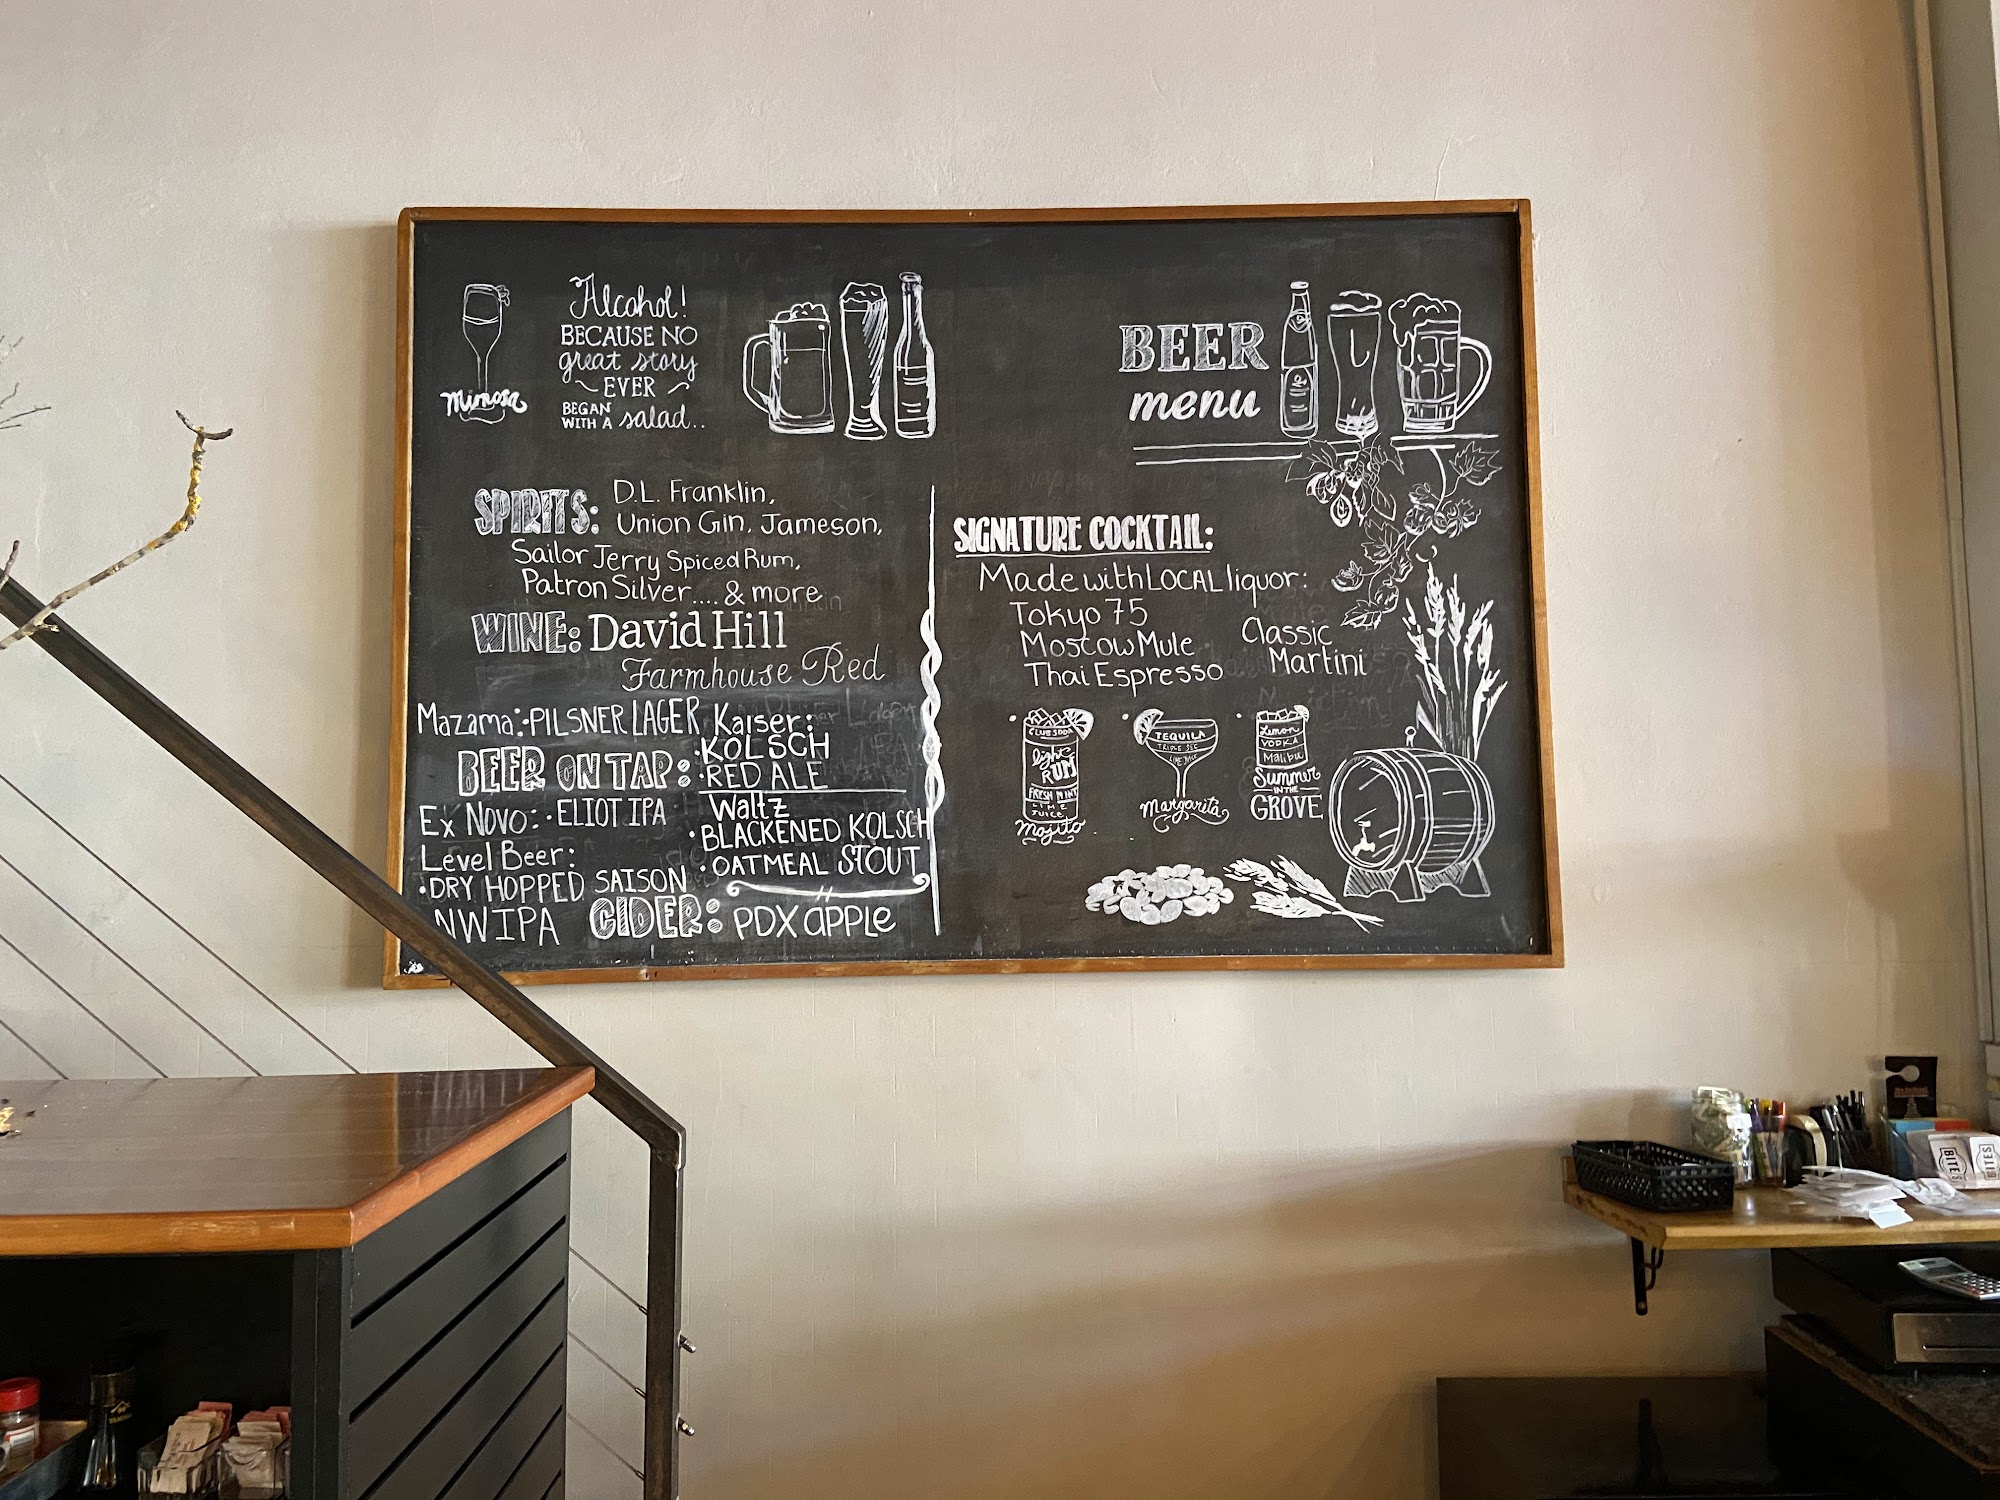 Mimosa
Alcohol!
BECAUSE NO
great story
EVER
BEGAN
WITH A salad..
BEER
menu
SPIRITS: D.L. Franklin,
Union Gin, Jameson,
Sailor Jerry Spiced Rum,
Patron Silver.... & more
WINE: David Hill
Farmhouse Red
Mazama: •PILSNER LAGER
BEER ON TAP:
Kaiser:
•KOLSCH
•RED ALE
Ex Novo: •ELIOT IPA
Level Beer:
•DRY HOPPED SAISON
NW IPA
Waltz
•BLACKENED KOLSCH
•OATMEAL STOUT
CIDER: PDX APPLE
SIGNATURE COCKTAIL:
Made with LOCAL liquor:
Tokyo 75
Moscow Mule
Thai Espresso
Classic
Martini
CLUB SODA
light
RUM
FRESH MINT
LIME
JUICE
Mojito
TEQUILA
TRIPLE SEC
LIME JUICE
Margarita
Lemon
VODKA
Malibu
Summer
IN THE
GROVE
BITES
BITES